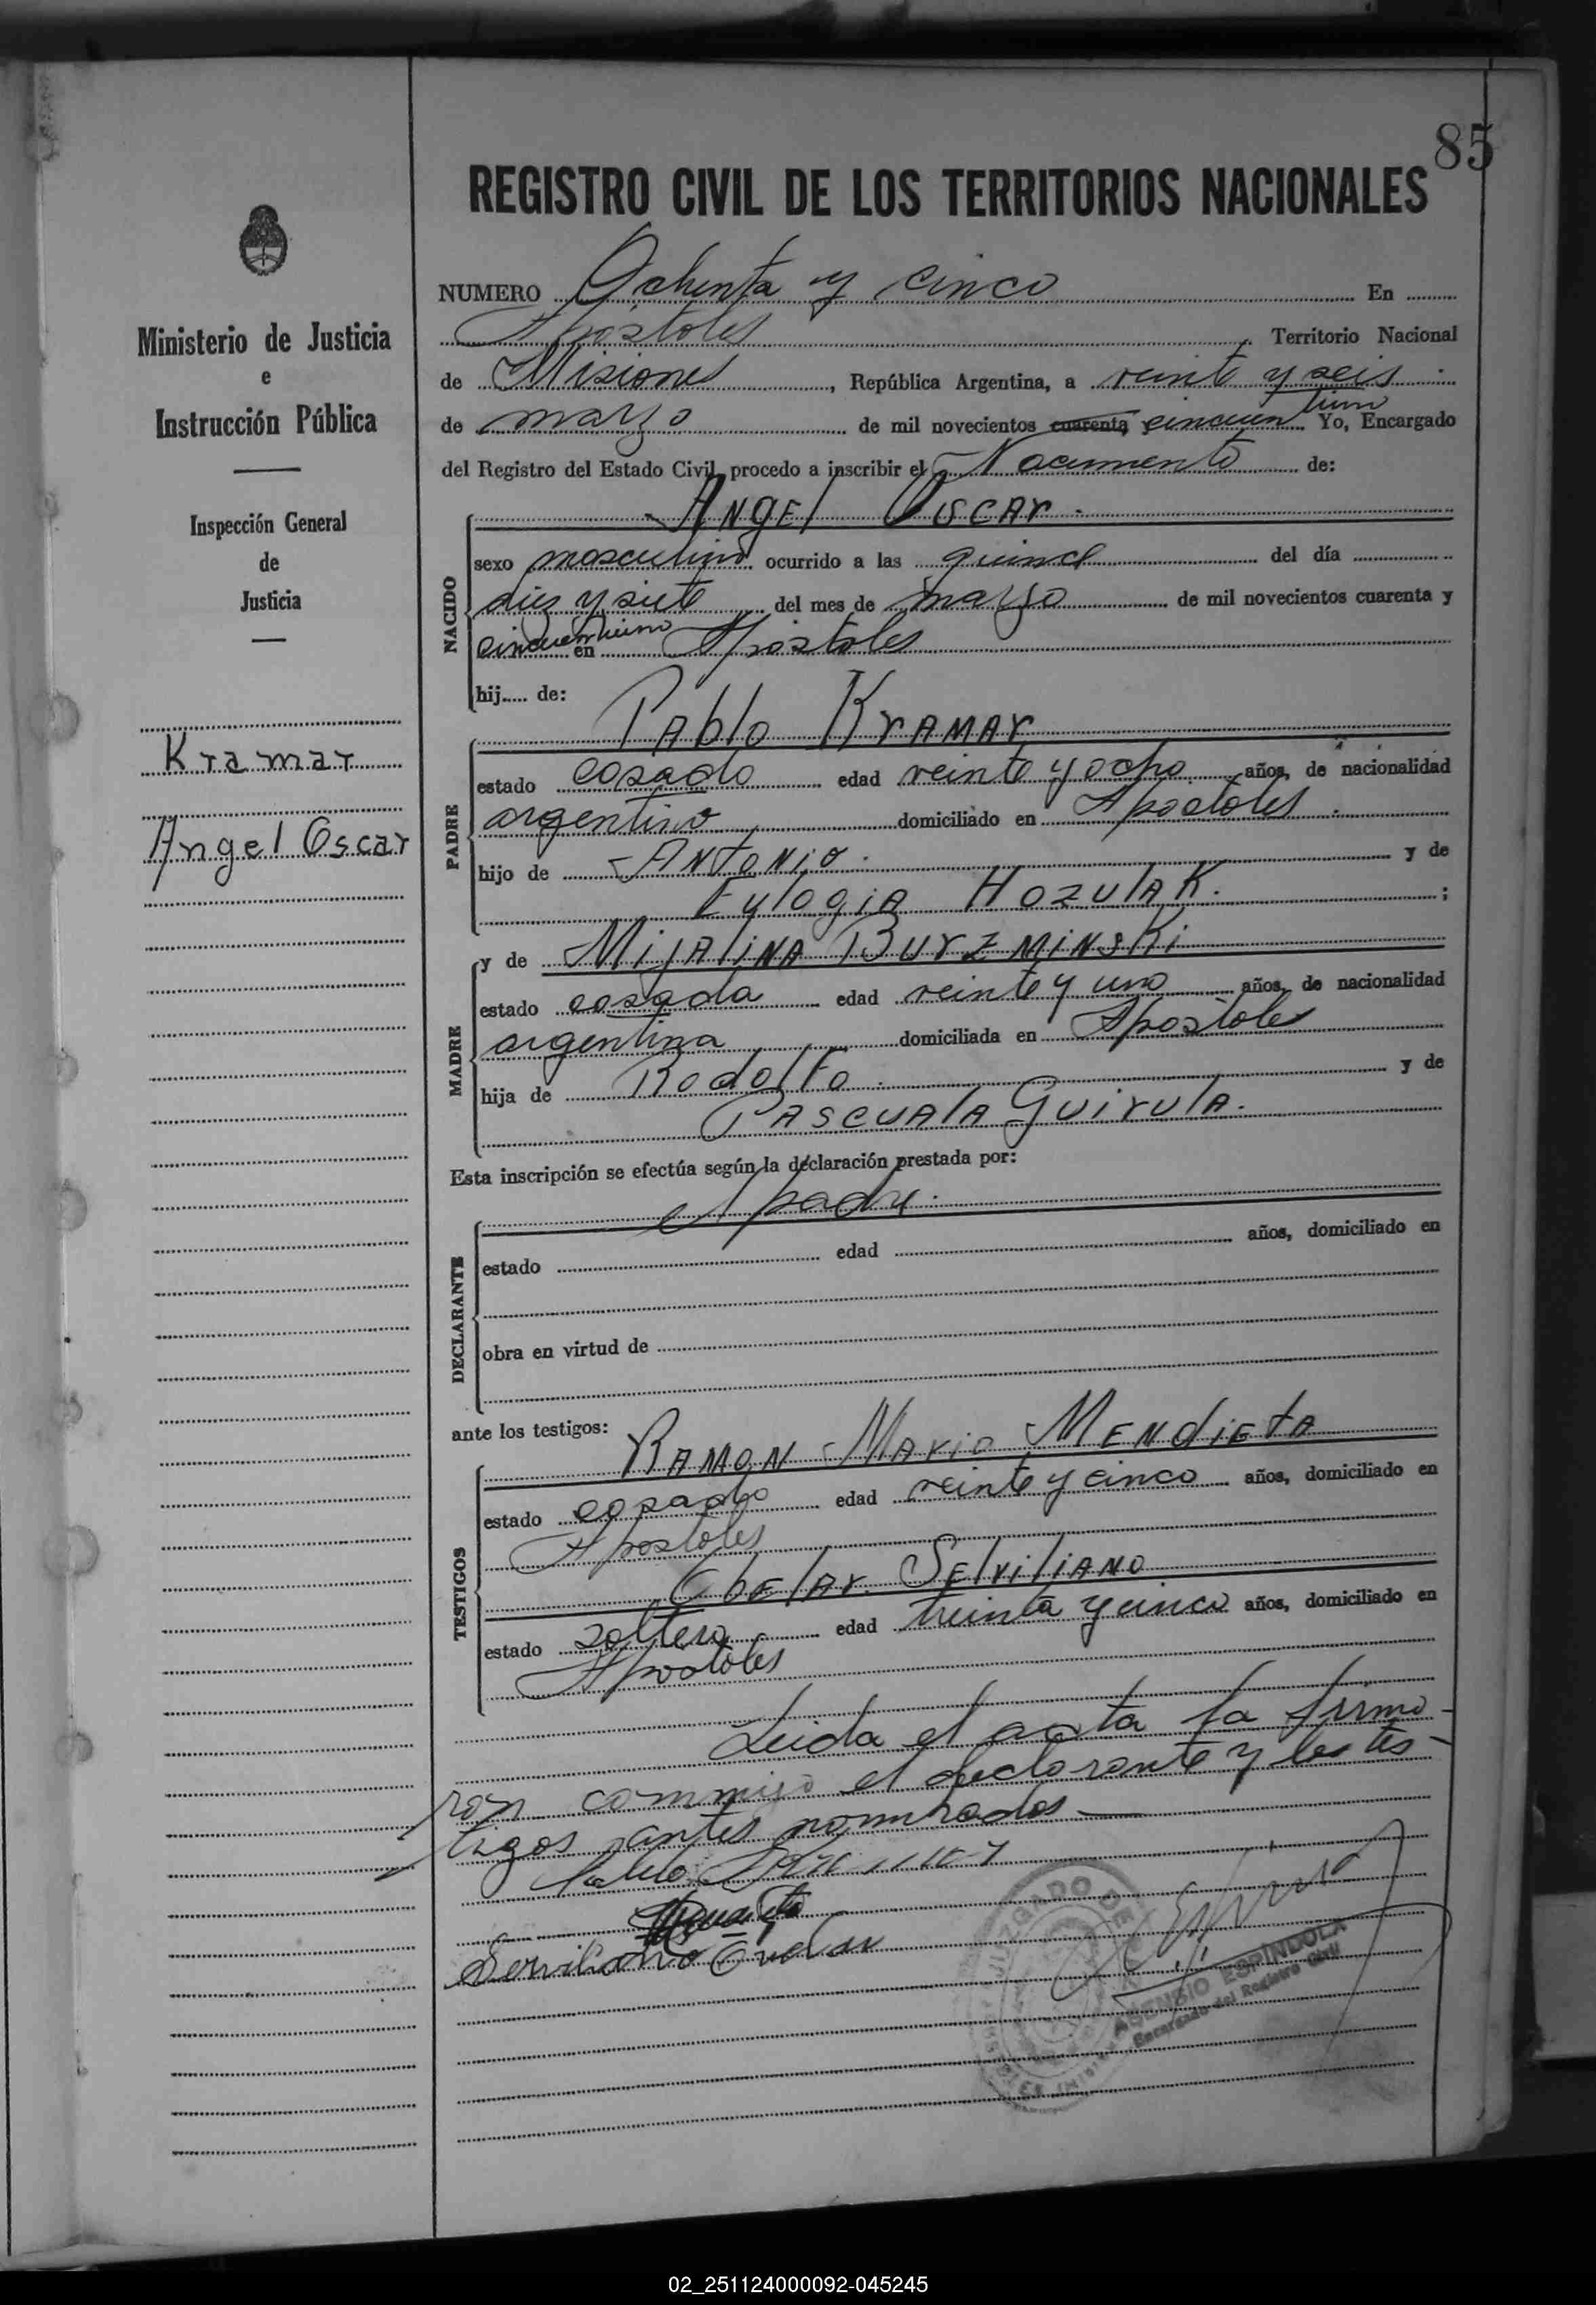 85
REGISTRO CIVIL DE LOS TERRITORIOS NACIONALES
Ministerio de Justicia
e
Instrucción Pública
Inspección General
de
Justicia
Kramar
Angel Oscar
NUMERO Ochenta y cinco En
Apóstoles Territorio Nacional
de Misiones, República Argentina, a veinte y seis
de marzo de mil novecientos cuarenta y cincuentiuno Yo, Encargado
del Registro del Estado Civil, procedo a inscribir el Nacimiento de:
NACIDO
Angel Oscar
sexo masculino ocurrido a las quince del día
diez y siete del mes de marzo de mil novecientos cuarenta y
cincuentiuno en Apóstoles
hij de:
PADRE
Pablo Kramar
estado casado edad veinte y ocho años, de nacionalidad
argentino domiciliado en Apostoles
hijo de Antonio y de
Eulogia Hozulak. ;
MADRE
y de Mijalina Burzminski
estado casada edad veinte y uno años, de nacionalidad
argentina domiciliada en Apostoles
hija de Rodolfo y de
Pascuala Guirula.
Esta inscripción se efectúa según la declaración prestada por:
DECLARANTE
el padre
estado edad años, domiciliado en
obra en virtud de
ante los testigos:
TESTIGOS
Ramon Mario Mendieta
estado casado edad veinte y cinco años, domiciliado en
Apostoles
Obelar Selviliano
estado soltero edad treinta y cinco años, domiciliado en
Apostoles
Leida el acta la firma-
ron conmigo el declarante y los tes-
tigos antes nombrados
Serviliano Ovelar
JUZGADO DE
ASENSIO ESPINDOLA
Encargado del Registro Civil
02_251124000092-045245